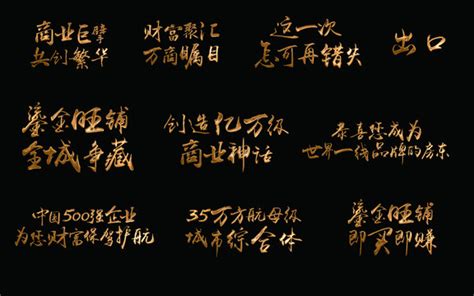 商业巨擘
共创繁华
财富聚汇
万商瞩目
这一次
怎可再错失
出口
鎏金旺铺
全城争藏
创造亿万级
商业神话
恭喜您成为
世界一线品牌的房东
中国500强企业
为您财富保驾护航
35万方航母级
城市综合体
鎏金旺铺
即买即赚